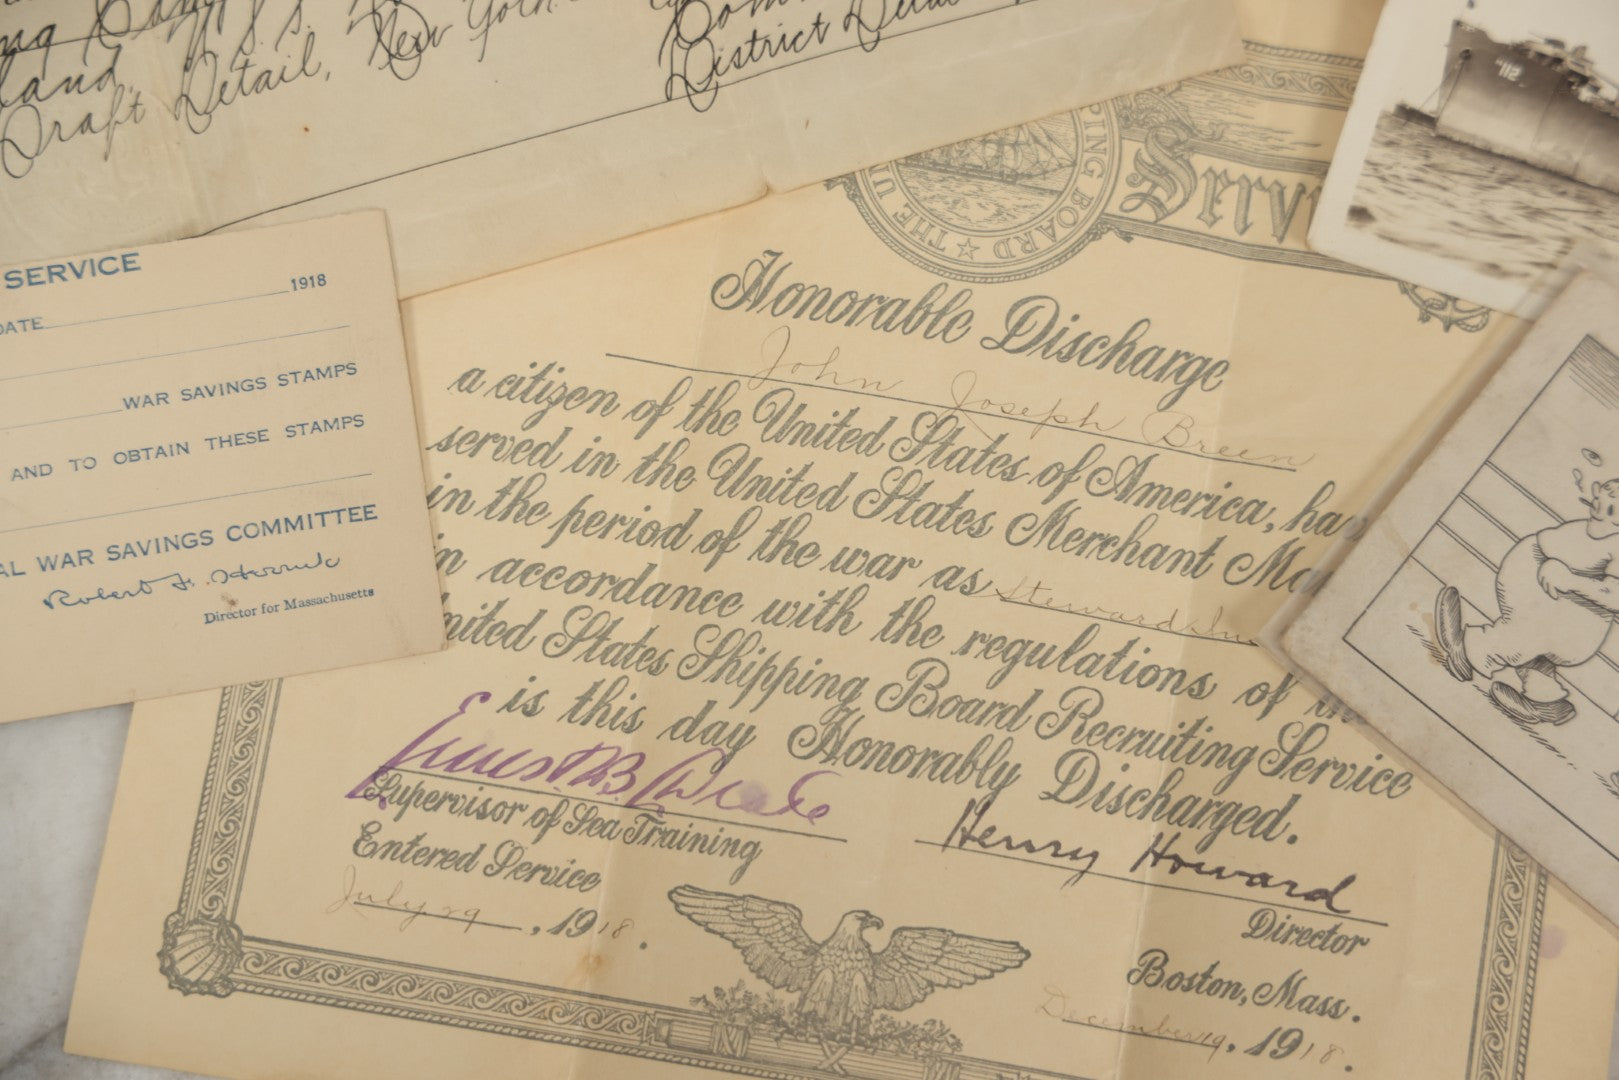 Draft Detail, New York
District
112
THE UN
PING BOARD
Servi
SERVICE
1918
DATE
WAR SAVINGS STAMPS
AND TO OBTAIN THESE STAMPS
AL WAR SAVINGS COMMITTEE
Director for Massachusetts
Honorable Discharge
John Joseph Breen
a citizen of the United States of America, has
served in the United States Merchant Ma
in the period of the war as Steward
in accordance with the regulations of the
United States Shipping Board Recruiting Service
is this day Honorably Discharged.
Henry Howard
Supervisor of Sea Training
Director
Entered Service
Boston, Mass.
July 29, 1918.
December 19, 1918.